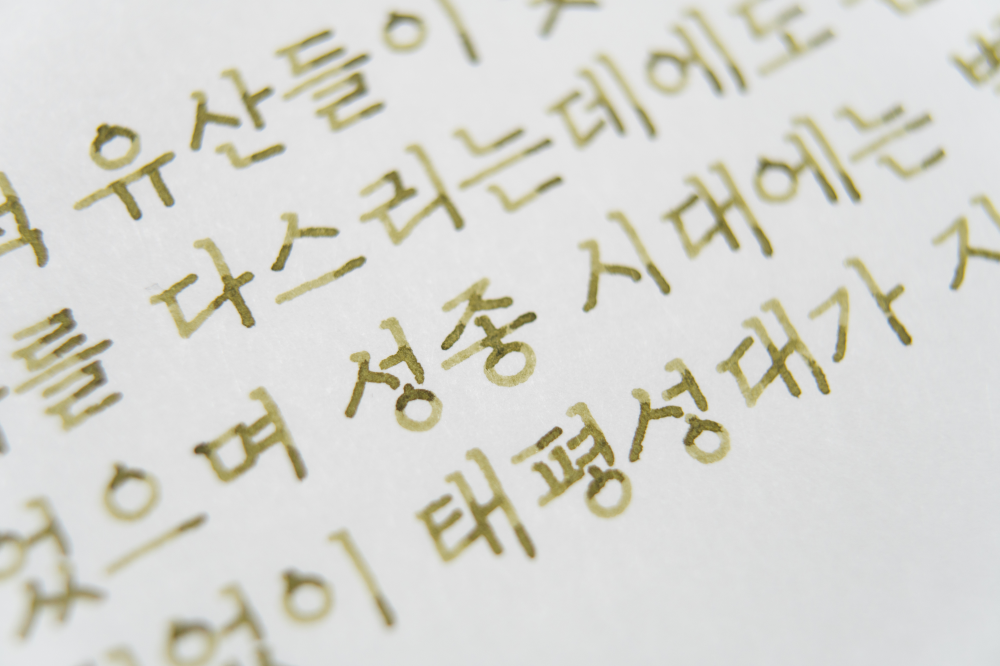 유산들이
를 다스리는데에도
있으며 성종 시대에는
없이 태평성대가